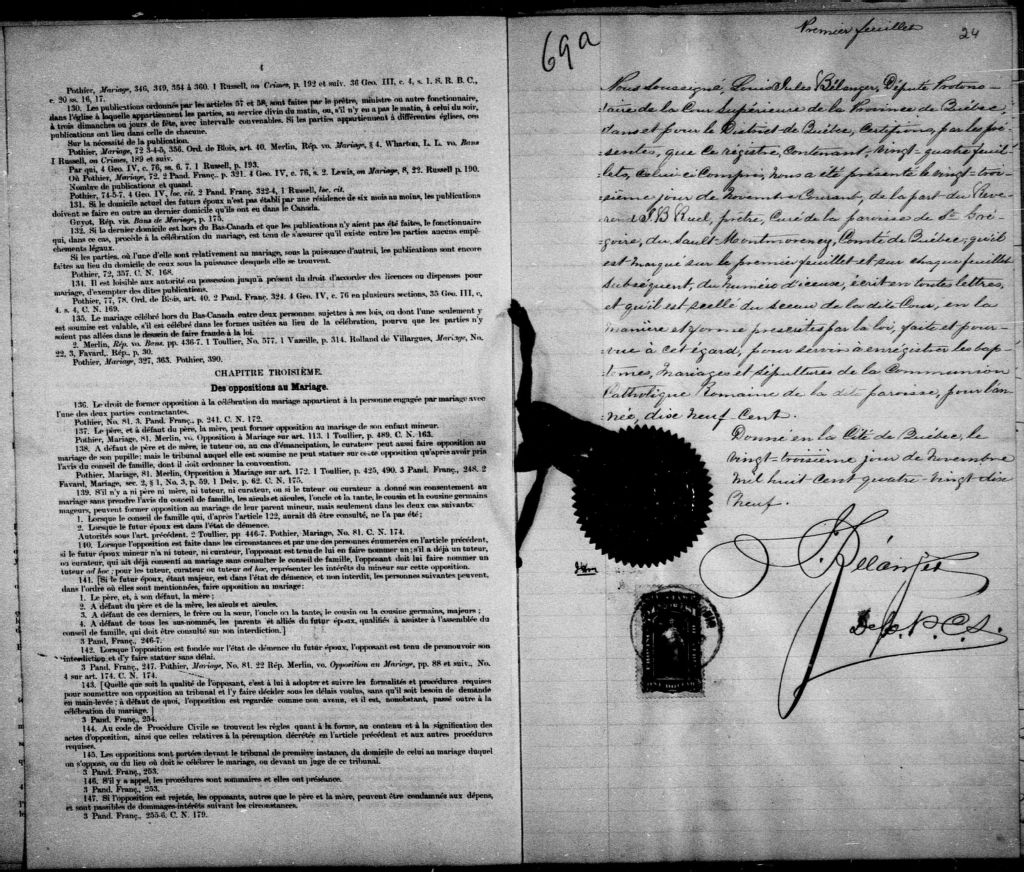 4
Pothier, Mariage, 346, 349, 354 à 360. 1 Russell, on Crimes, p. 192 et suiv. 36 Geo. III, c. 4, s. 1. S. R. B. C.,
c. 20 ss. 16, 17.
130. Les publications ordonnées par les articles 57 et 58, sont faites par le prêtre, ministre ou autre fonctionnaire,
dans l'église à laquelle appartiennent les parties, au service divin du matin, ou, s'il n'y en a pas le matin, à celui du soir,
à trois dimanches ou jours de fête, avec intervalle convenables. Si les parties appartiennent à différentes églises, ces
publications ont lieu dans celle de chacune.
Sur la nécessité de la publication.
Pothier, Mariage, 72 3-4-5, 356. Ord. de Blois, art. 40. Merlin, Rép. vo. Mariage, § 4. Wharton, L. L. vo. Bans
1 Russell, on Crimes, 189 et suiv.
Par qui, 4 Geo. IV, c. 76, ss. 6. 7. 1 Russell, p. 193.
Où Pothier, Mariage, 72. 2 Pand. Franç. p. 321. 4 Geo. IV, c. 76, s. 2. Lewis, on Mariage, 8, 22. Russell p. 190.
Nombre de publications et quand.
Pothier, 74-5-7. 4 Geo. IV, loc. cit. 2 Pand. Franç. 322-4, 1 Russell, loc. cit.
131. Si le domicile actuel des futurs époux n'est pas établi par une résidence de six mois au moins, les publications
doivent se faire en outre au dernier domicile qu'ils ont eu dans le Canada.
Guyot, Rép. vis. Bans de Mariage, p. 175.
132. Si le dernier domicile est hors du Bas-Canada et que les publications n'y aient pas été faites, le fonctionnaire
qui, dans ce cas, procède à la célébration du mariage, est tenu de s'assurer qu'il existe entre les parties aucuns empê-
chements légaux.
Si les parties, ou l'une d'elles sont relativement au mariage, sous la puissance d'autrui, les publications sont encore
faites au lieu du domicile de ceux sous la puissance desquels elle se trouvent.
Pothier, 72, 357. C. N. 168.
134. Il est loisible aux autorités en possession jusqu'à présent du droit d'accorder des licences ou dispenses pour
mariage, d'exempter des dites publications.
Pothier, 77, 78. Ord. de Blois, art. 40. 2 Pand. Franç. 324. 4 Geo. IV, c. 76 en plusieurs sections, 35 Geo. III, c,
4. s. 4, C. N. 169.
135. Le mariage célébré hors du Bas-Canada entre deux personnes sujettes à ses lois, ou dont l'une seulement y
est soumise est valable, s'il est célébré dans les formes usitées au lieu de la célébration, pourvu que les parties n'y
soient pas allées dans le dessein de faire fraude à la loi.
2. Merlin, Rép. vo. Bans. pp. 436-7. 1 Toullier, No. 577, 1 Vazeille, p. 314. Rolland de Villargues, Mariage, No.
22, 3, Favard, Rép., p. 30.
Pothier, Mariage, 327, 363. Pothier, 390.
CHAPITRE TROISIÈME.
Des oppositions au Mariage.
136. Le droit de former opposition à la célébration du mariage appartient à la personne engagée par mariage avec
l'une des deux parties contractantes.
Pothier, No. 81. 3. Pand. Franç., p. 241. C. N. 172.
137. Le père, et à défaut du père, la mère, peut former opposition au mariage de son enfant mineur.
Pothier, Mariage, 81. Merlin, vo. Opposition à Mariage sur art. 113. 1 Toullier, p. 489. C. N. 163.
138. A défaut de père et de mère, le tuteur ou, au cas d'émancipation, le curateur peut aussi faire opposition au
mariage de son pupille; mais le tribunal auquel elle est soumise ne peut statuer sur cette opposition qu'après avoir pris
l'avis du conseil de famille, dont il doit ordonner la convention.
Pothier, Mariage, 81. Merlin, Opposition à Mariage sur art. 172. 1 Toullier, p. 425, 490. 3 Pand. Franç., 248. 2
Favard, Mariage, sec. 2, § 1, No. 3, p. 59. 1 Delv. p. 62. C. N. 175.
139. S'il n'y a ni père ni mère, ni tuteur, ni curateur, ou si le tuteur ou curateur a donné son consentement au
mariage sans prendre l'avis du conseil de famille, les aïeuls et aïeules, l'oncle et la tante, le cousin et la cousine germains
majeurs, peuvent former opposition au mariage de leur parent mineur, mais seulement dans les deux cas suivants.
1. Lorsque le conseil de famille qui, d'après l'article 122, aurait dû être consulté, ne l'a pas été;
2. Lorsque le futur époux est dans l'état de démence.
Autorités sous l'art. précédent. 2 Toullier, pp 446-7. Pothier, Mariage, No. 81. C. N. 174.
140. Lorsque l'opposition est faite dans les circonstances et par une des personnes énumérées en l'article précédent,
si le futur époux mineur n'a ni tuteur, ni curateur, l'opposant est tenu de lui en faire nommer un; s'il a déjà un tuteur,
ou curateur, qui ait déjà consenti au mariage sans consulter le conseil de famille, l'opposant doit lui faire nommer un
tuteur ad hoc; pour les tuteur, curateur ou tuteur ad hoc, représenter les intérêts du mineur sur cette opposition.
141. [Si le futur époux, étant majeur, est dans l'état de démence, et non interdit, les personnes suivantes peuvent,
dans l'ordre où elles sont mentionnées, faire opposition au mariage:
1. Le père, et, à son défaut, la mère;
2. A défaut du père et de la mère, les aïeuls et aïeules.
3. A défaut de ces derniers, le frère ou la sœur, l'oncle ou la tante, le cousin ou la cousine germains, majeurs;
4. A défaut de tous les sus-nommés, les parents et alliés du futur époux, qualifiés à assister à l'assemblée du
conseil de famille, qui doit être consulté sur son interdiction.]
3 Pand. Franç., 246-7.
142. Lorsque l'opposition est fondée sur l'état de démence du futur époux, l'opposant est tenu de promouvoir son
interdiction et d'y faire statuer sans délai.
3 Pand. Franç., 247. Pothier, Mariage, No. 81. 22 Rép. Merlin, vo. Opposition au Mariage, pp. 88 et suiv., No.
4 sur art. 174. C. N. 174.
143. [Quelque soit la qualité de l'opposant, c'est à lui à adopter et suivre les formalités et procédures requises
pour soumettre son opposition au tribunal et l'y faire décider sous les délais voulus, sans qu'il soit besoin de demande
en main-levée; à défaut de quoi, l'opposition est regardée comme non avenue, et il est, nonobstant, passé outre à la
célébration du mariage.]
3 Pand. Franç., 254.
144. Au code de Procédure Civile se trouvent les règles quant à la forme, au contenu et à la signification des
actes d'opposition, ainsi que celles relatives à la péremption décrétée en l'article précédent et aux autres procédures
requises.
145. Les oppositions sont portées devant le tribunal de première instance, du domicile de celui au mariage duquel
on s'oppose, ou du lieu où doit se célébrer le mariage, ou devant un juge de ce tribunal.
3 Pand. Franç., 253.
146. S'il y a appel, les procédures sont sommaires et elles ont préséance.
3 Pand. Franç., 253.
147. Si l'opposition est rejetée, les opposants, autres que le père et la mère, peuvent être condamnés aux dépens,
et sont passibles de dommages-intérêts suivant les circonstances.
3 Pand. Franç., 255-6. C. N. 179.
69a
Premier feuillet
24
Nous Soussigné, Louis Jules Bélanger, Député Protono-
-taire de la Cour Supérieure de la Province de Québec,
dans et pour le District de Québec, Certifions, par les pré-
-sentes, que ce registre, contenant, vingt-quatre feuil-
-lets, celui-ci compris, nous a été présenté le vingt-troi-
-sième jour de Novembre Courant, de la part du Reve-
-rend J. B. Ruel, prêtre, Curé de la paroisse de St. Gré-
-goire, du Sault-Montmorency, Comté de Québec; qu'il
est marqué sur le premier feuillet et sur chaque feuillet
subséquent, du numéro d'iceux, écrit en toutes lettres,
et qu'il est scellé du sceau de la dite Cour, en la
manière et forme prescrites par la loi, faite et pour-
-vue à cet égard, pour servir à enrégistrer les bap-
-têmes, mariages et sépultures de la Communion
Catholique Romaine de la dite paroisse, pour l'an-
-née, dix neuf-Cent.
Donné en la Cité de Québec, le
vingt-troisième jour de Novembre
Mil huit Cent quatre-vingt dix
Neuf.
J. Bélanger
Dep. P. C. S.